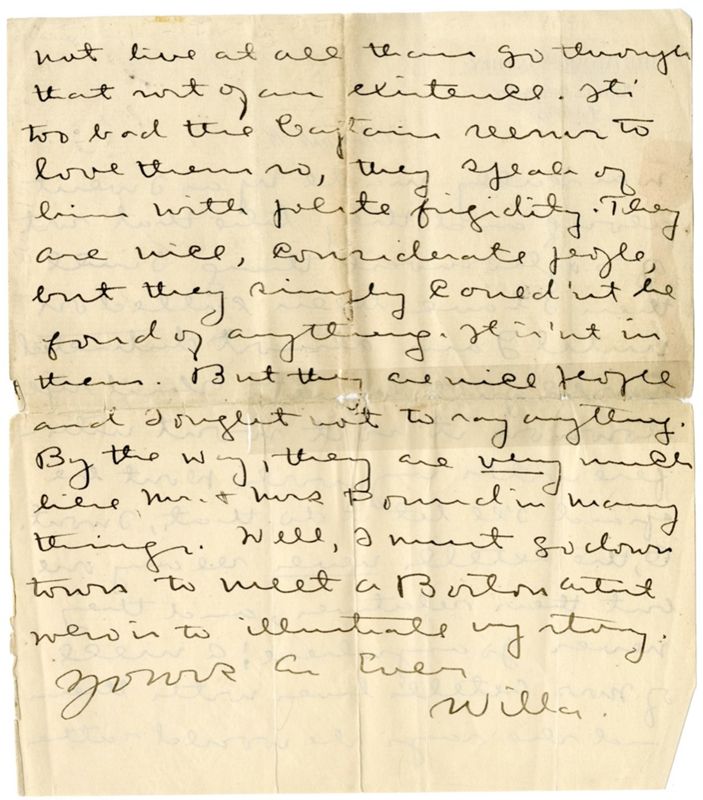 not live at all than go through
that sort of an existence. It's
too bad the Captain seems to
love them so, they speak of
him with polite frigidity. They
are nice, considerate people,
but they simply could'nt be
fond of anything. It is'nt in
them. But they are nice people
and I ought not to say anything.
By the way, they are very much
like Mr. & Mrs Pound in many
things. Well, I must go down
town to meet a Boston artist
who is to illustrate my story.
Yours as Ever
Willa.